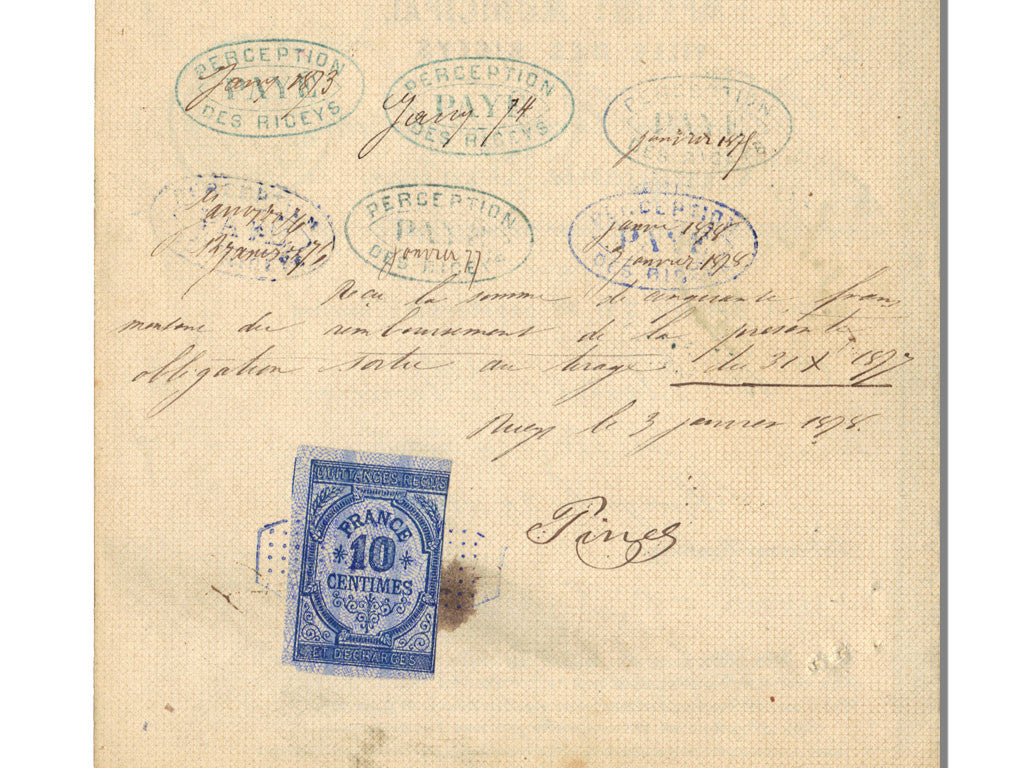 PERCEPTION
PAYÉ
DES RICEYS
Janv 1873
PERCEPTION
PAYÉ
DES RICEYS
Janv 74
PERCEPTION
PAYÉ
DES RICEYS
janvier 1875
PERCEPTION
PAYÉ
PERCEPTION
PAYÉ
DES RICE
PERCEPTION
PAYÉ
DES RICEYS
janv 1878
3 janvier 1878
Reçu la somme de cinquante francs
montant du remboursement de la présente
obligation sortie au tirage du 31 X 1877
Riceys le 3 janvier 1878.
QUITTANCES REÇUS
FRANCE
10
CENTIMES
ET DÉCHARGES